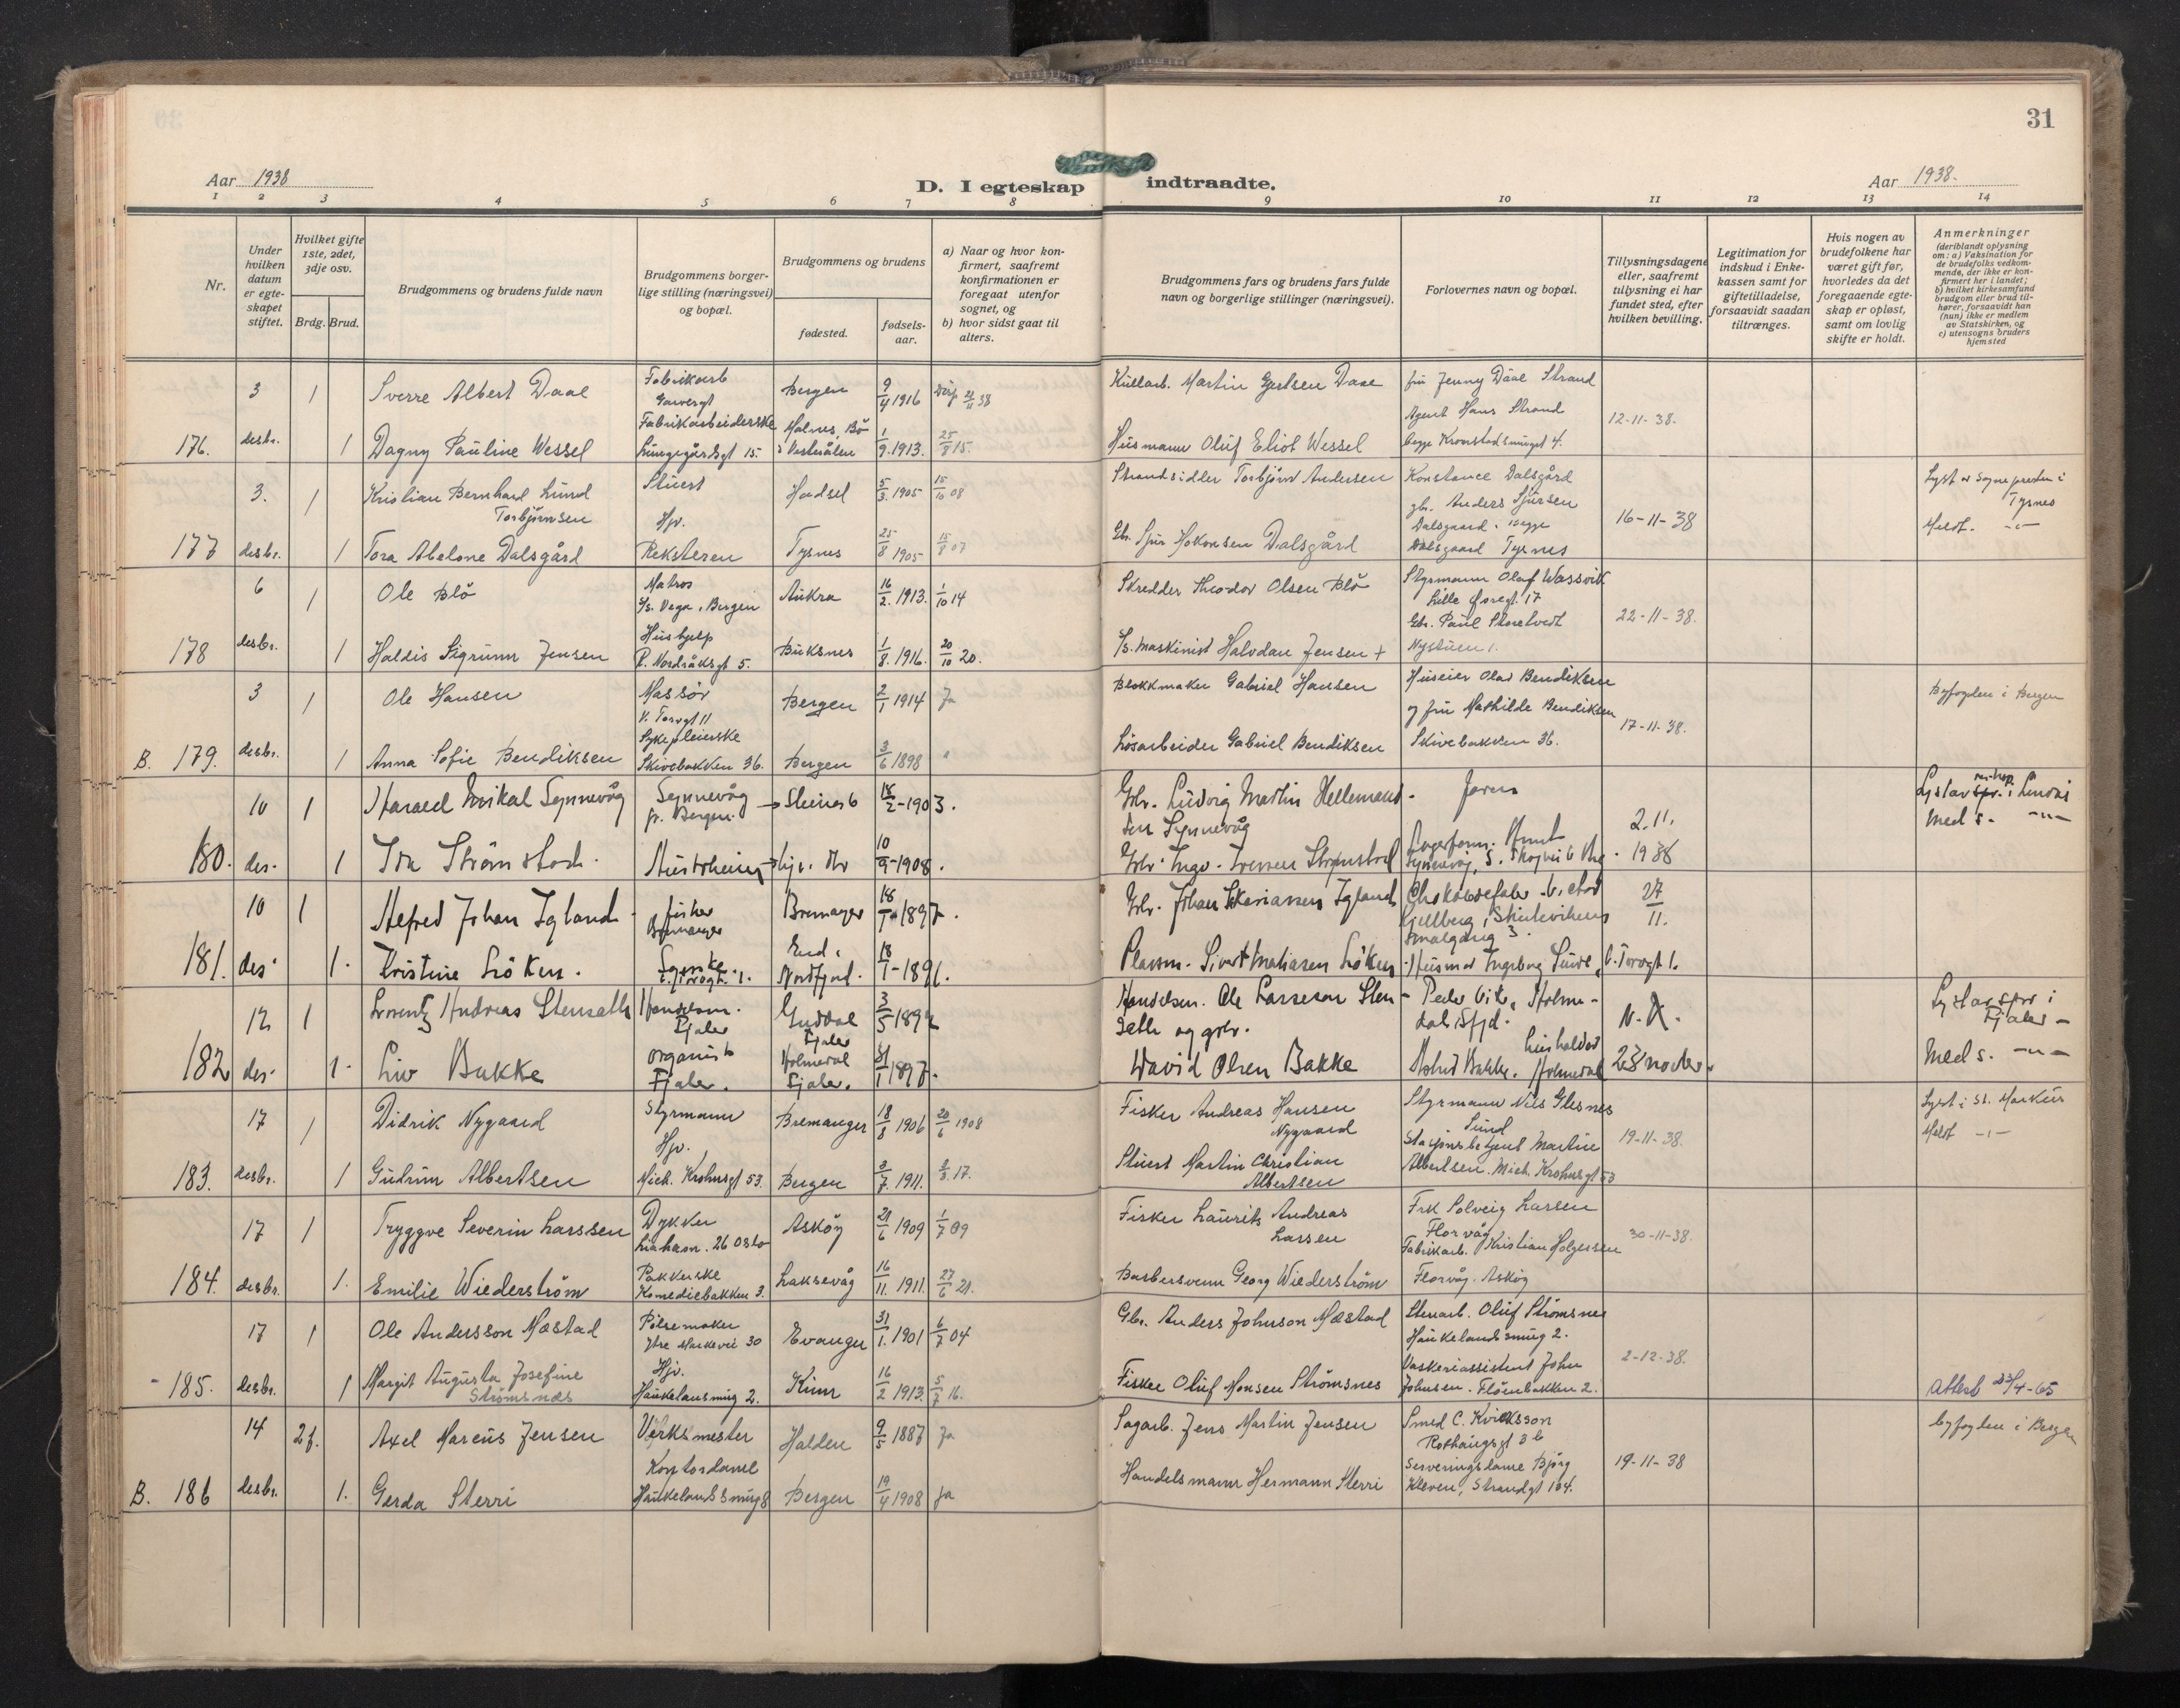 31
Aar 1938
D. I egteskap indtraadte.
Aar 1938.
1 2 3 4 5 6 7 8 9 10 11 12 13 14
Nr.
Under hvilken datum er egteskapet stiftet.
Hvilket gifte 1ste, 2det, 3dje osv.
Brdg. Brud.
Brudgommens og brudens fulde navn
Brudgommens borgerlige stilling (næringsvei) og bopæl.
Brudgommens og brudens
fødested.
fødselsaar.
a) Naar og hvor konfirmert, saafremt konfirmationen er foregaat utenfor sognet, og
b) hvor sidst gaat til alters.
Brudgommens fars og brudens fars fulde navn og borgerlige stillinger (næringsvei).
Forlovernes navn og bopæl.
Tillysningsdagene eller, saafremt tillysning ei har fundet sted, efter hvilken bevilling.
Legitimation for indskud i Enkekassen samt for giftetilladelse, forsaavidt saadan tiltrænges.
Hvis nogen av brudefolkene har været gift før, hvorledes da det foregaaende egteskap er opløst, samt om lovlig skifte er holdt.
Anmerkninger
(deriblandt oplysning om: a) Vaksination for de brudefolks vedkommende, der ikke er konfirmert her i landet; b) hvilket kirkesamfund brudgom eller brud tilhører, forsaavidt han (hun) ikke er medlem av Statskirken, og c) utensogns bruders hjemsted
3 1 Sverre Albert Daae Fabrikarb Bergen 9/4 1916 Martin Gertsen Daae fru Jenny Daae Strand
Agent Hans Strand 12-11-38.
176. desbr. 1 Dagny Pauline Wessel Fabrikarbeiderske Lungegårdsgt 15. Malnes, Bø i Vesterålen 1/9 1913. 25/8 15. Husmann Oluf Eliot Wessel begge Kronstadsmuget 4.
3. 1 Kristian Bernhard Lund Torbjørnsen Stuert Hadsel 5/3 1905 15/10 08 Strandsidder Torbjørn Andersen Konstance Dalsgård
gbr. Anders Sjursen Dalsgaard begge 16-11-38
Lyst av sognepresten i Tysnes
Meldt. -"-
177 desbr. 1 Tora Abelone Dalsgård Hjv. Reksteren Tysnes 25/8 1905 15/8 07 Gbr. Sjur Hokonsen Dalsgård Dalsgaard Tysnes
6 1 Ole Blø Matros S/s. Vega, Bergen Aukra 16/2. 1913. 1/10 14 Skredder Theodor Olsen Blø Styrmann Olaf Wassvik
Lille Øvregt. 17
22-11-38.
178 desbr. 1 Haldis Sigrunn Jensen Hushjelp R. Nordråksgt 5. Buksnes 1/8. 1916. 20/10 20. Maskinist Halvdan Jensen + Gbr. Paul Skretvedt Nystuen 1.
3 1 Ole Hansen Massør V. Torvgt 11 Bergen 2/1 1914 Ja Blokkmaker Gabriel Hansen Huseier Olav Bendiksen
og fru Mathilde Bendiksen 17-11-38.
Byfogden i Bergen
B. 179. desbr. 1 Anna Sofie Bendiksen Sykepleierske Skivebakken 36. Bergen 3/6 1898 " Løsarbeider Gabriel Bendiksen Skivebakken 36.
10 1 Harald Mikal Synnevåg Synnevåg pr. Bergen - 18/2-1903. Gbr. Ludvig Martin Hellemandsen Synnevåg
2.11. 1938
Meds. -"-
180. des. 1 Ida Strømstad. Austrheim 10/9-1908. Gbr. Strømstad
10 1 Alfred Johan Igland fisker Bremanger Bremanger 18/1-1897. Gbr. Johan Igland
27/11.
181. des. 1. Kristine Løken. Eid i Nordfjord. 18/1-1891. Plassm. Sivert Matiasen Løken Husmor Ingeborg V. Torvgt 1.
12 1 Lorentz Andreas Stensæth Handelsm. Fjaler Guddal Fjaler 3/5 1892 Handelsm. Ole Larseson Stensæth og gbr. Peder Vik, Holmedal Sfjd.
Lyst av spr i Fjaler -
Meds. -"-
182 des. 1. Liv Bakke organist Fjaler. Holmedal Fjaler. 1897. David Olsen Bakke Astrid Bakke. Holmedal 23 novbr.
17 1 Didrik Nygaard Styrmann Bremanger 18/8 1906 20/6 1908 Fisker Andreas Hansen Nygaard Styrmann Nils Glesnes Sund
19-11-38.
Lyst i St. Markus
Meldt -"-
183. desbr. 1 Gudrun Albertsen Hjv. Mich. Krohnsgt 53. Bergen 3/7. 1911. 2/3 17. Stuert Martin Christian Albertsen Stasjonsbetjent Martin Albertsen. Mich. Krohnsgt 53
17 1 Tryggve Severin Larssen Dykker 26 Oslo Askøy 21/6 1909 1/7 09 Fisker Laurits Andreas Larsen Frk Solveig Larsen Florvåg
30-11-38.
184. desbr. 1. Emilie Wiederstrøm Pakkerske Komediebakken 3. Laksevåg 16/11. 1911. 27/6 21. Barbersvenn Georg Wiederstrøm Fabrikarb. Kristian Holgersen Florvåg. Askøy
17 1 Ole Andersson Mæstad Pølsemaker Ytre Markevei 30 Evanger 31/1. 1901 6/7 04 Gbr. Anders Johnson Mæstad Stenarb. Oluf Strømsnes Haukelandsmug 2.
2-12-38.
- 185. desbr. 1 Margit Augusta Josefine Strømsnæs Hjv. Haukelansmug 2. Kinn 16/2 1913. 5/7 16. Fisker Oluf Monsen Strømsnes Vaskeriassistent John Johnsen. Fløenbakken 2.
Attest 23/4-65
14 2f. Axel Marcus Jensen Verksmester Halden 9/5 1887 Ja Sagarb. Jens Martin Jensen Smed C. Kvicksson Rothaugsgt 3 b
19-11-38
byfogden i Bergen
B. 186 desbr. 1. Gerda Sterri Kontordame Haukelandsmug 8 Bergen 19/4 1908 Ja Handelsmann Hermann Sterri Serveringsdame Bjørg Kleven, Strandgt 104.